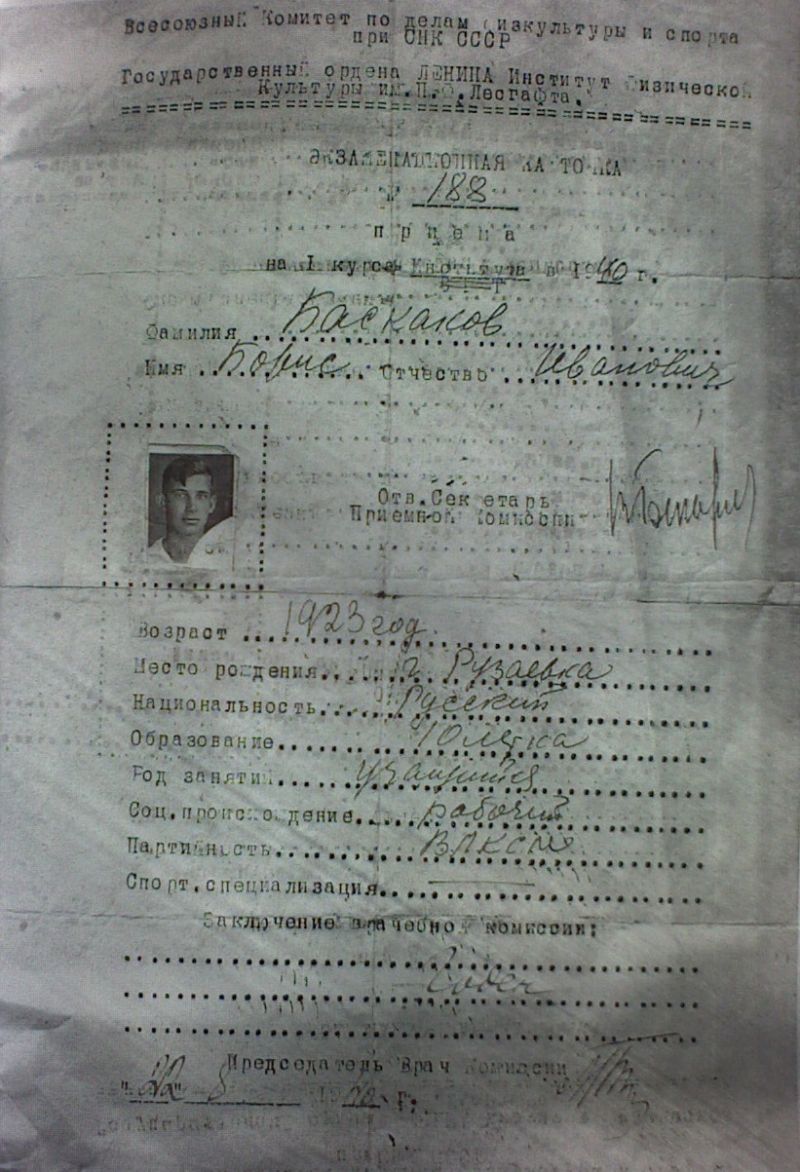 Всесоюзный Комитет по делам физкультуры и спорта
при СНК СССР
Государственный ордена ЛЕНИНА Институт Физической
Культуры им. П.Ф. Лесгафта.
ЭКЗАМЕНАЦИОННАЯ КАРТОЧКА
№ 188
приема
на I курс Института в 1940 г.
Фамилия Баскаков
Имя Борис Отчество Иванович
Отв. Секретарь
Приемной Комиссии
Возраст 1923 год
Место рождения г. Рузаевка
Национальность Русский
Образование 10 летка
Род занятий учащийся
Соц. происхождение рабочий
Партийность ВЛКСМ
Спорт. специализация —
Заключение врачебной комиссии:
Годен
Председатель Врач Комиссии
"22" 8 1940 г.